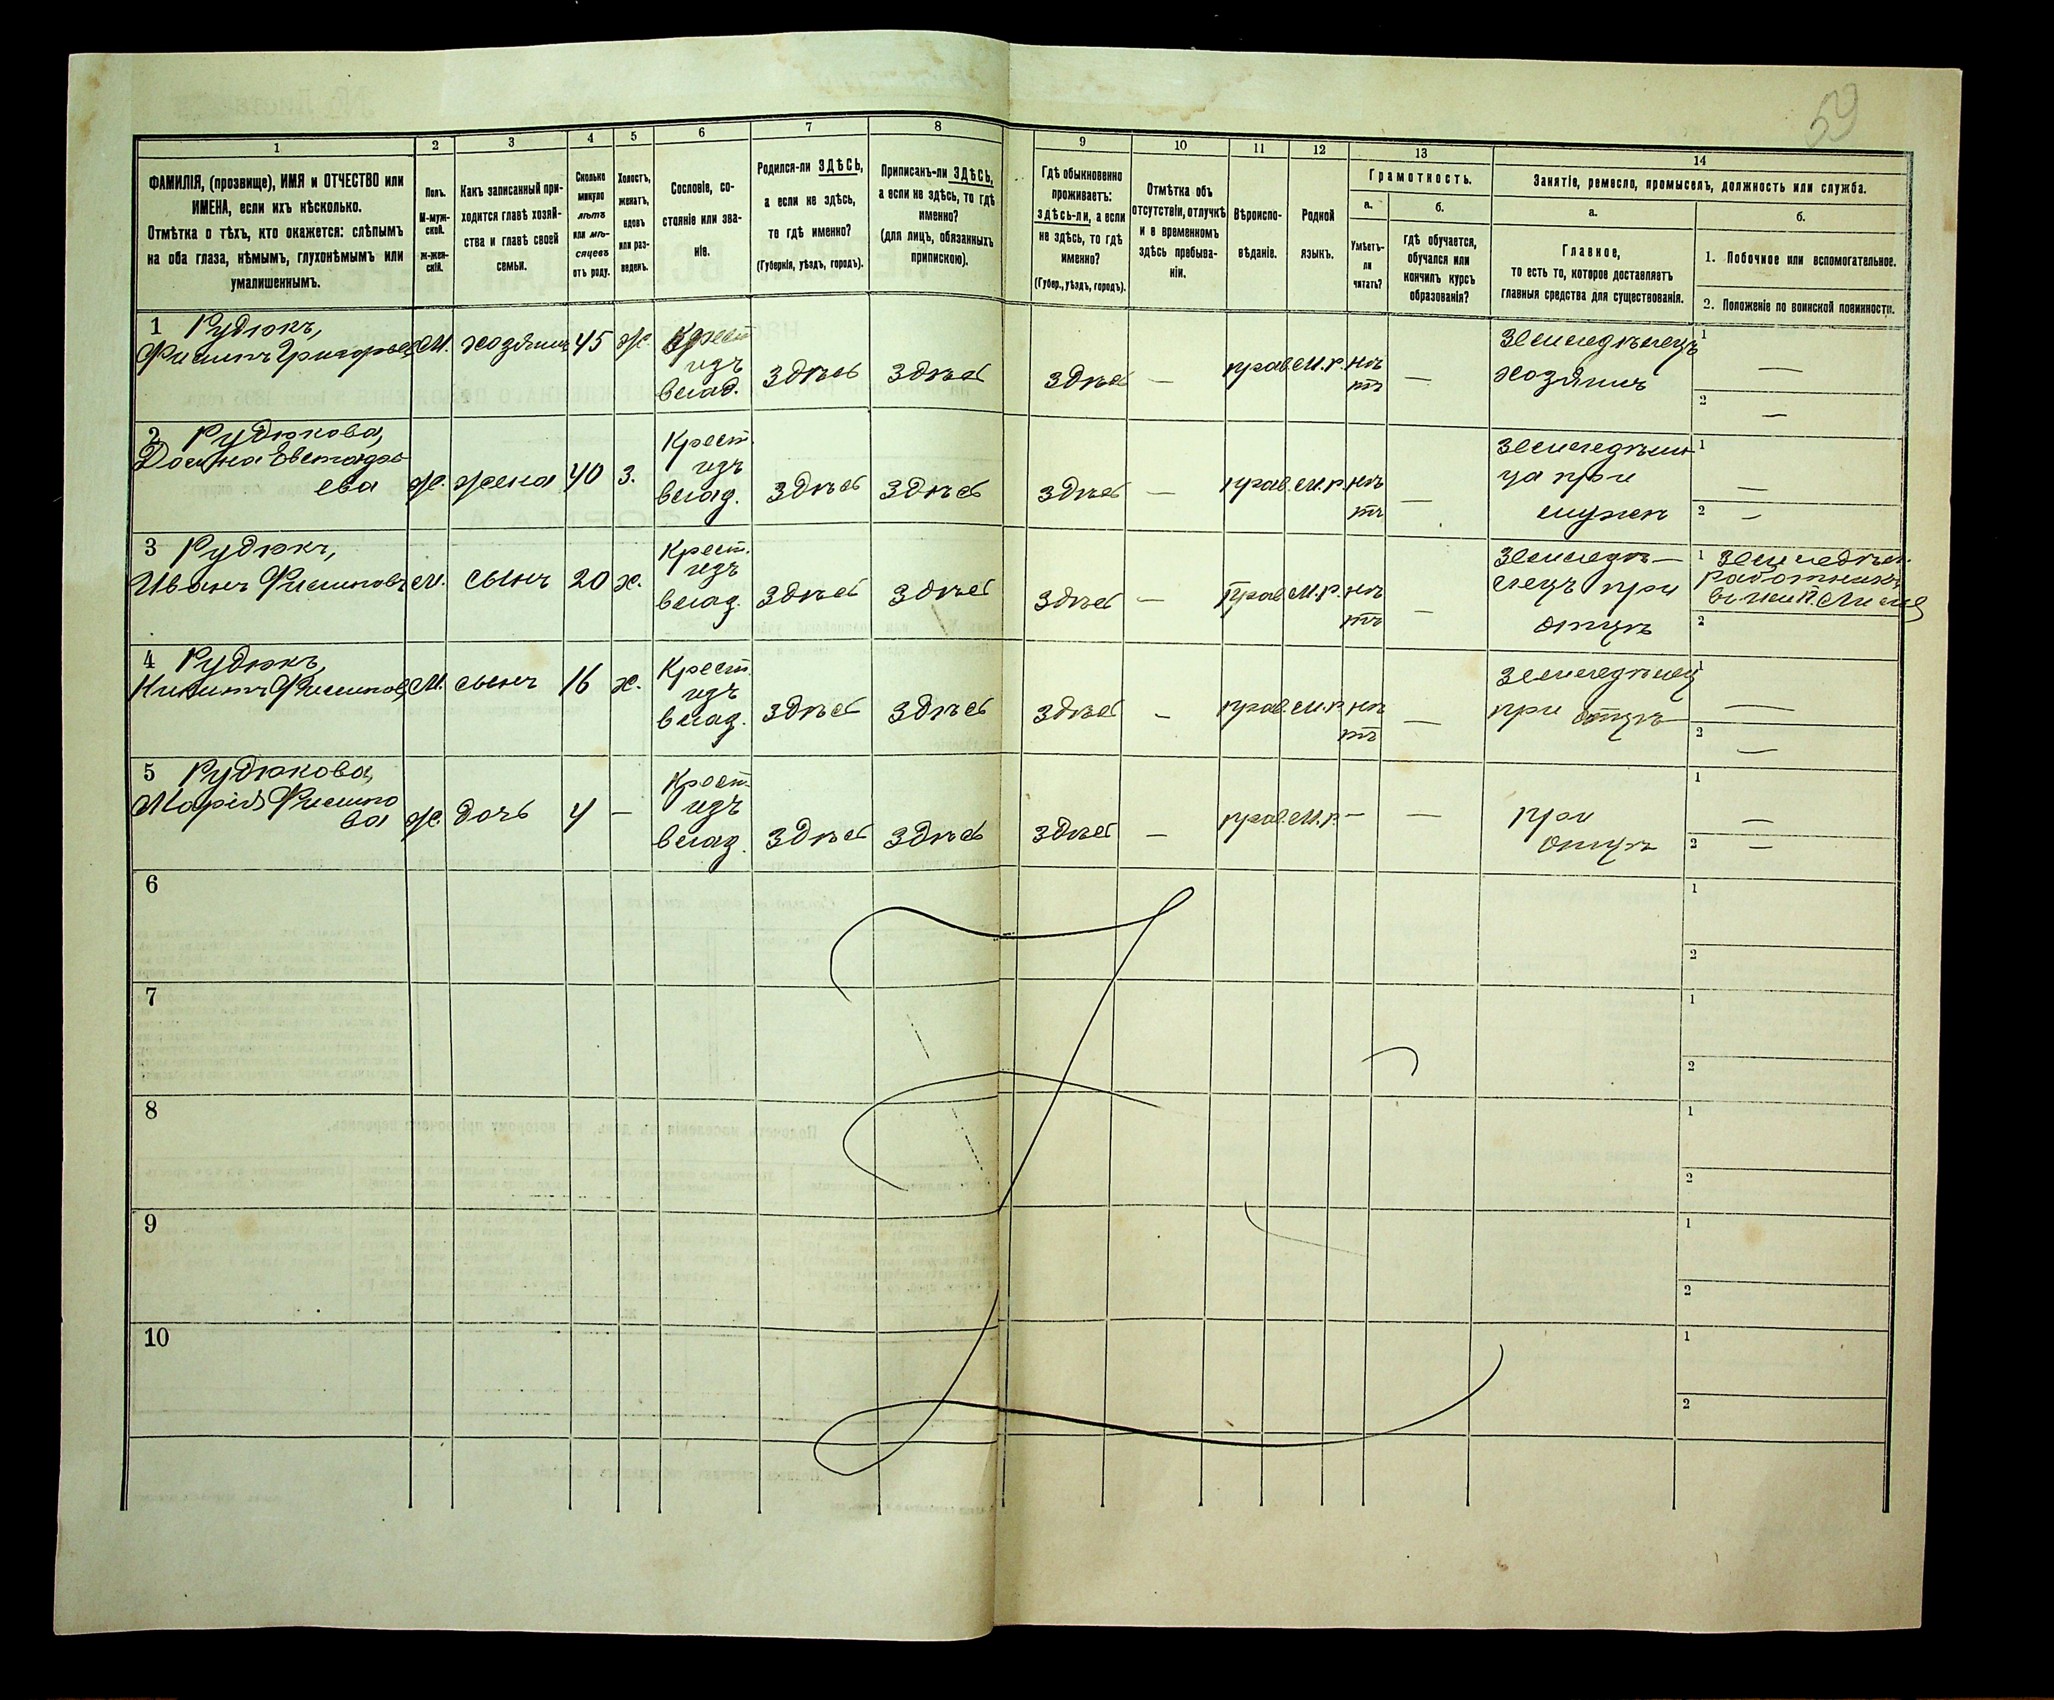 59
1
2
3
4
5
6
7
8
9
10
11
12
13
14
ФАМИЛІЯ, (прозвище), ИМЯ и ОТЧЕСТВО или
ИМЕНА, если ихъ нѣсколько.
Отмѣтка о тѣхъ, кто окажется: слѣпымъ
на оба глаза, нѣмымъ, глухонѣмымъ или
умалишеннымъ.
Полъ.
М-муж-
ской.
ж-жен-
скій.
Какъ записанный при-
ходится главѣ хозяй-
ства и главѣ своей
семьи.
Сколько
минуло
лѣтъ
или мѣ-
сяцевъ
отъ роду.
Холостъ,
женатъ,
вдовъ
или раз-
веденъ.
Сословіе, со-
стояніе или зва-
ніе.
Родился-ли ЗДѢСЬ,
а если не здѣсь,
то гдѣ именно?
(Губернія, уѣздъ, городъ).
Приписанъ-ли ЗДѢСЬ,
а если не здѣсь, то гдѣ
именно?
(для лицъ, обязанныхъ
припискою).
Гдѣ обыкновенно
проживаетъ:
здѣсь-ли, а если
не здѣсь, то гдѣ
именно?
(Губер., уѣздъ, городъ).
Отмѣтка объ
отсутствіи, отлучкѣ
и о временномъ
здѣсь пребыва-
ніи.
Вѣроиспо-
вѣданіе.
Родной
языкъ.
Грамотность.
а.
Умѣетъ-
ли
читать?
б.
гдѣ обучается,
обучался или
кончилъ курсъ
образованія?
Занятіе, ремесло, промыселъ, должность или служба.
а.
Главное,
то есть то, которое доставляетъ
главныя средства для существованія.
б.
1. Побочное или вспомогательное.
2. Положеніе по воинской повинности.
1 Рудюкъ,
Филипъ Григорьев
М.
хозяинъ
45
ж.
Крест
изъ
влад.
здѣсь
здѣсь
здѣсь
—
прав.
М.р.
нѣ
тъ
—
Земледѣлецъ
хозяинъ
1
—
2
—
2 Рудюкова,
Евстафь
ева
ж.
жена
40
з.
Крест.
изъ
влад.
здѣсь
здѣсь
здѣсь
—
прав.
М.р.
нѣ
тъ
—
Земледѣли
ца при
мужѣ
1
—
2
—
3 Рудюкъ,
Иванъ Филиповъ
М.
сынъ
20
х.
Крест.
изъ
влад.
здѣсь
здѣсь
здѣсь
—
прав.
М.р.
нѣ
тъ
—
Земледѣ—
лецъ при
отцѣ
1 Земледѣл.
работникъ
2
4 Рудюкъ,
Филипов
М.
сынъ
16
х.
Крест.
изъ
влад.
здѣсь
здѣсь
здѣсь
—
прав.
М.р.
нѣ
тъ
—
Земледѣлец
при отцѣ
1
—
2
—
5 Рудюкова,
Марія Филипо
ва
ж.
дочь
4
—
Крест.
изъ
влад.
здѣсь
здѣсь
здѣсь
—
прав.
М.р.
—
—
при
отцѣ
1
—
2
—
6
1
2
7
1
2
8
1
2
9
1
2
10
1
2